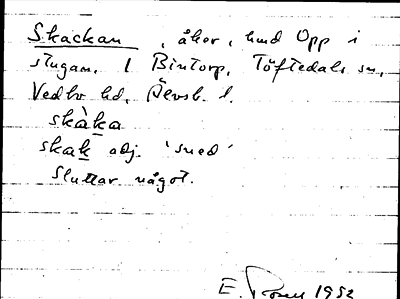 Skackan, åker, hmd Opp i
stugan, 1 Bintorp, Töftedals sn,
Vedbo hd, Älvsb. l.
skàka
skak adj. 'sned'
Sluttar något.
E. 1952